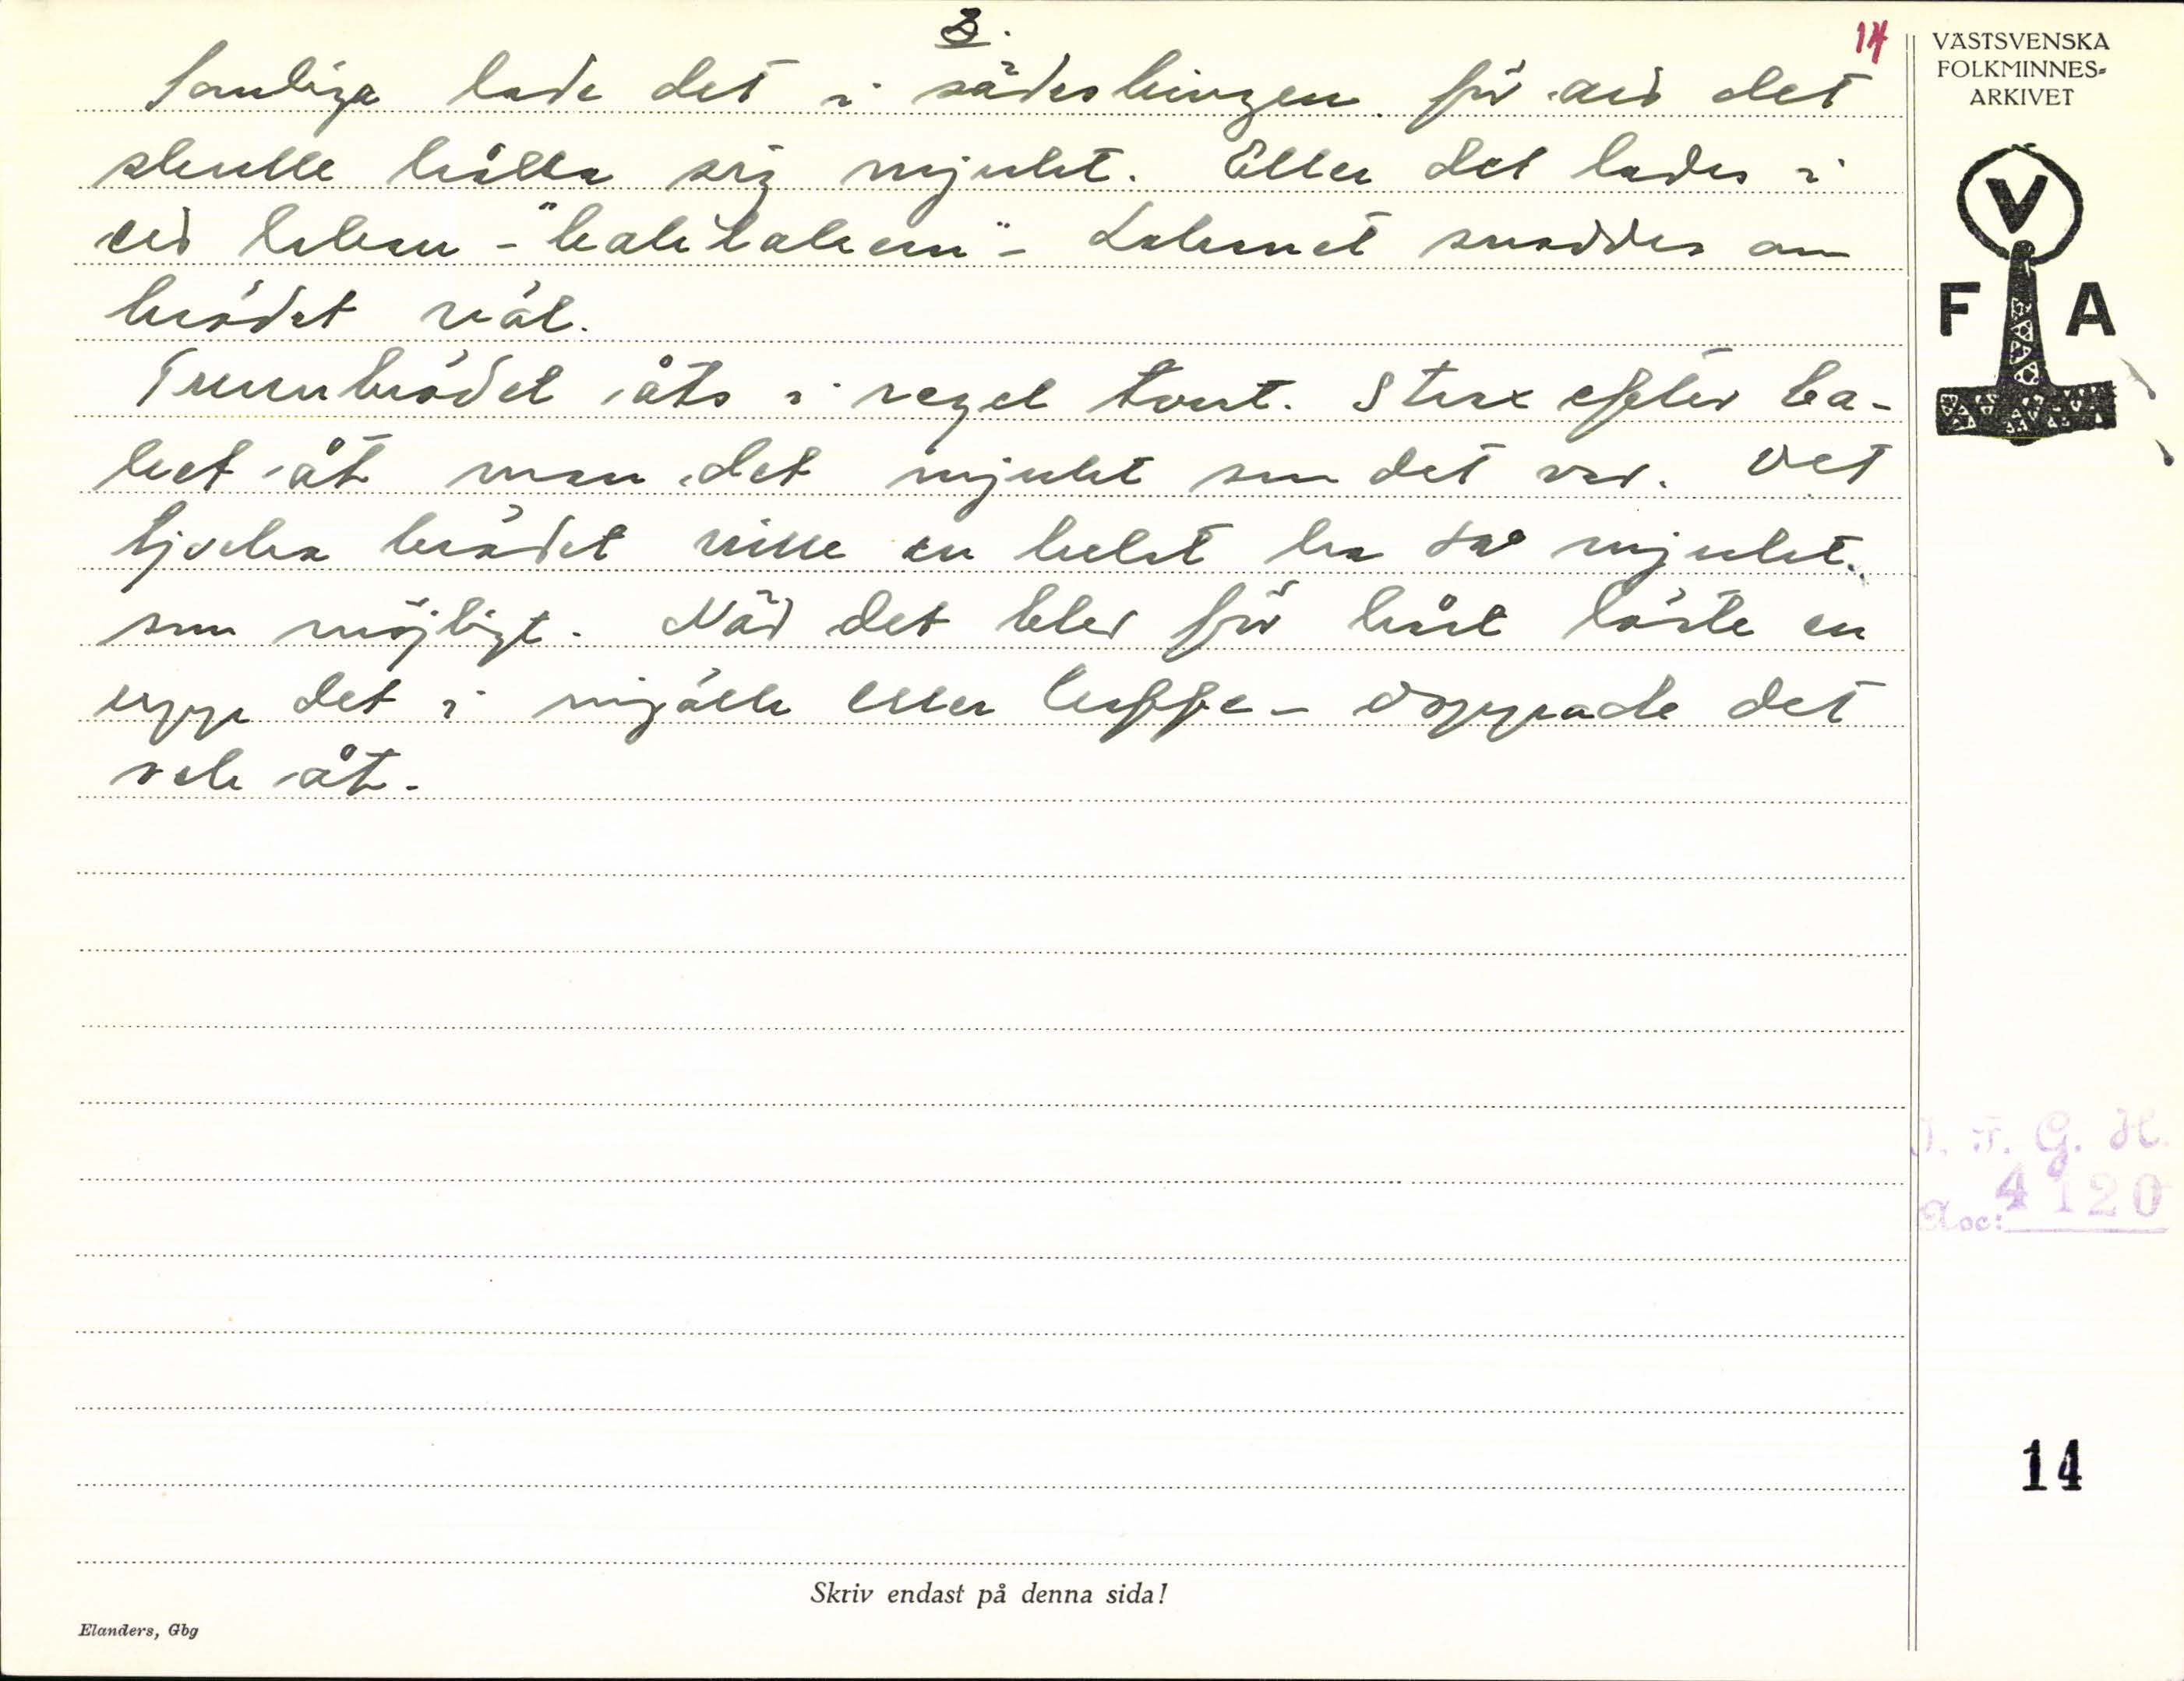 3.
14
Somliga lade det i sädesbingen för att det
skulle hålla sig mjukt. Eller det lades i
ett lakan - "baklakan" - Lakanet snoddes om
brödet väl.
Tunnbrödet åts i regel tort. Strax efter ba-
ket åt man det mjukt som det var. Det
tjocka brödet ville en helst ha så mjukt
som möjligt. När det blev för hårt löste en
upp det i mjölk eller kaffe - doppade det
och åt.
VÄSTSVENSKA
FOLKMINNES-
ARKIVET
V
F A
G. H.
Acc: 4120
14
Skriv endast på denna sida!
Elanders, Gbg